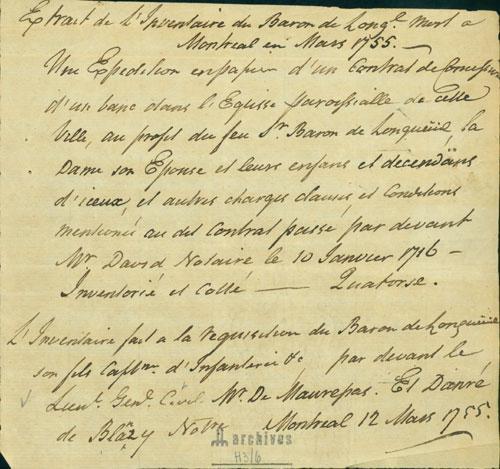 Extrait de l'Inventaire du Baron de Longl. mort a
Montreal en Mars 1755.—
Une Expedition en papier d'un Contrat de Concession
d'un banc dans l'Eglise paroissialle de Cette
Ville, au profit du feu Sr. Baron de Longueüil, la
Dame son Epouse et leurs enfans et decendans
d'iceux, et autres charges clauses et Conditions
mentioneé au dit Contrat passé par devant
Mr David Notaire le 10 Janvier 1716 —
Inventorié et Cotté — Quatorse.
L'Inventaire fait a la requisition du Baron de Longueüil
son fils Captne. d'Infanterie &c par devant le
Lieut. Genl. Civil Mr. De Maurepas. Et Danré
de Blanzy Notre Montreal 12 Mars 1755.
archives
H3/6